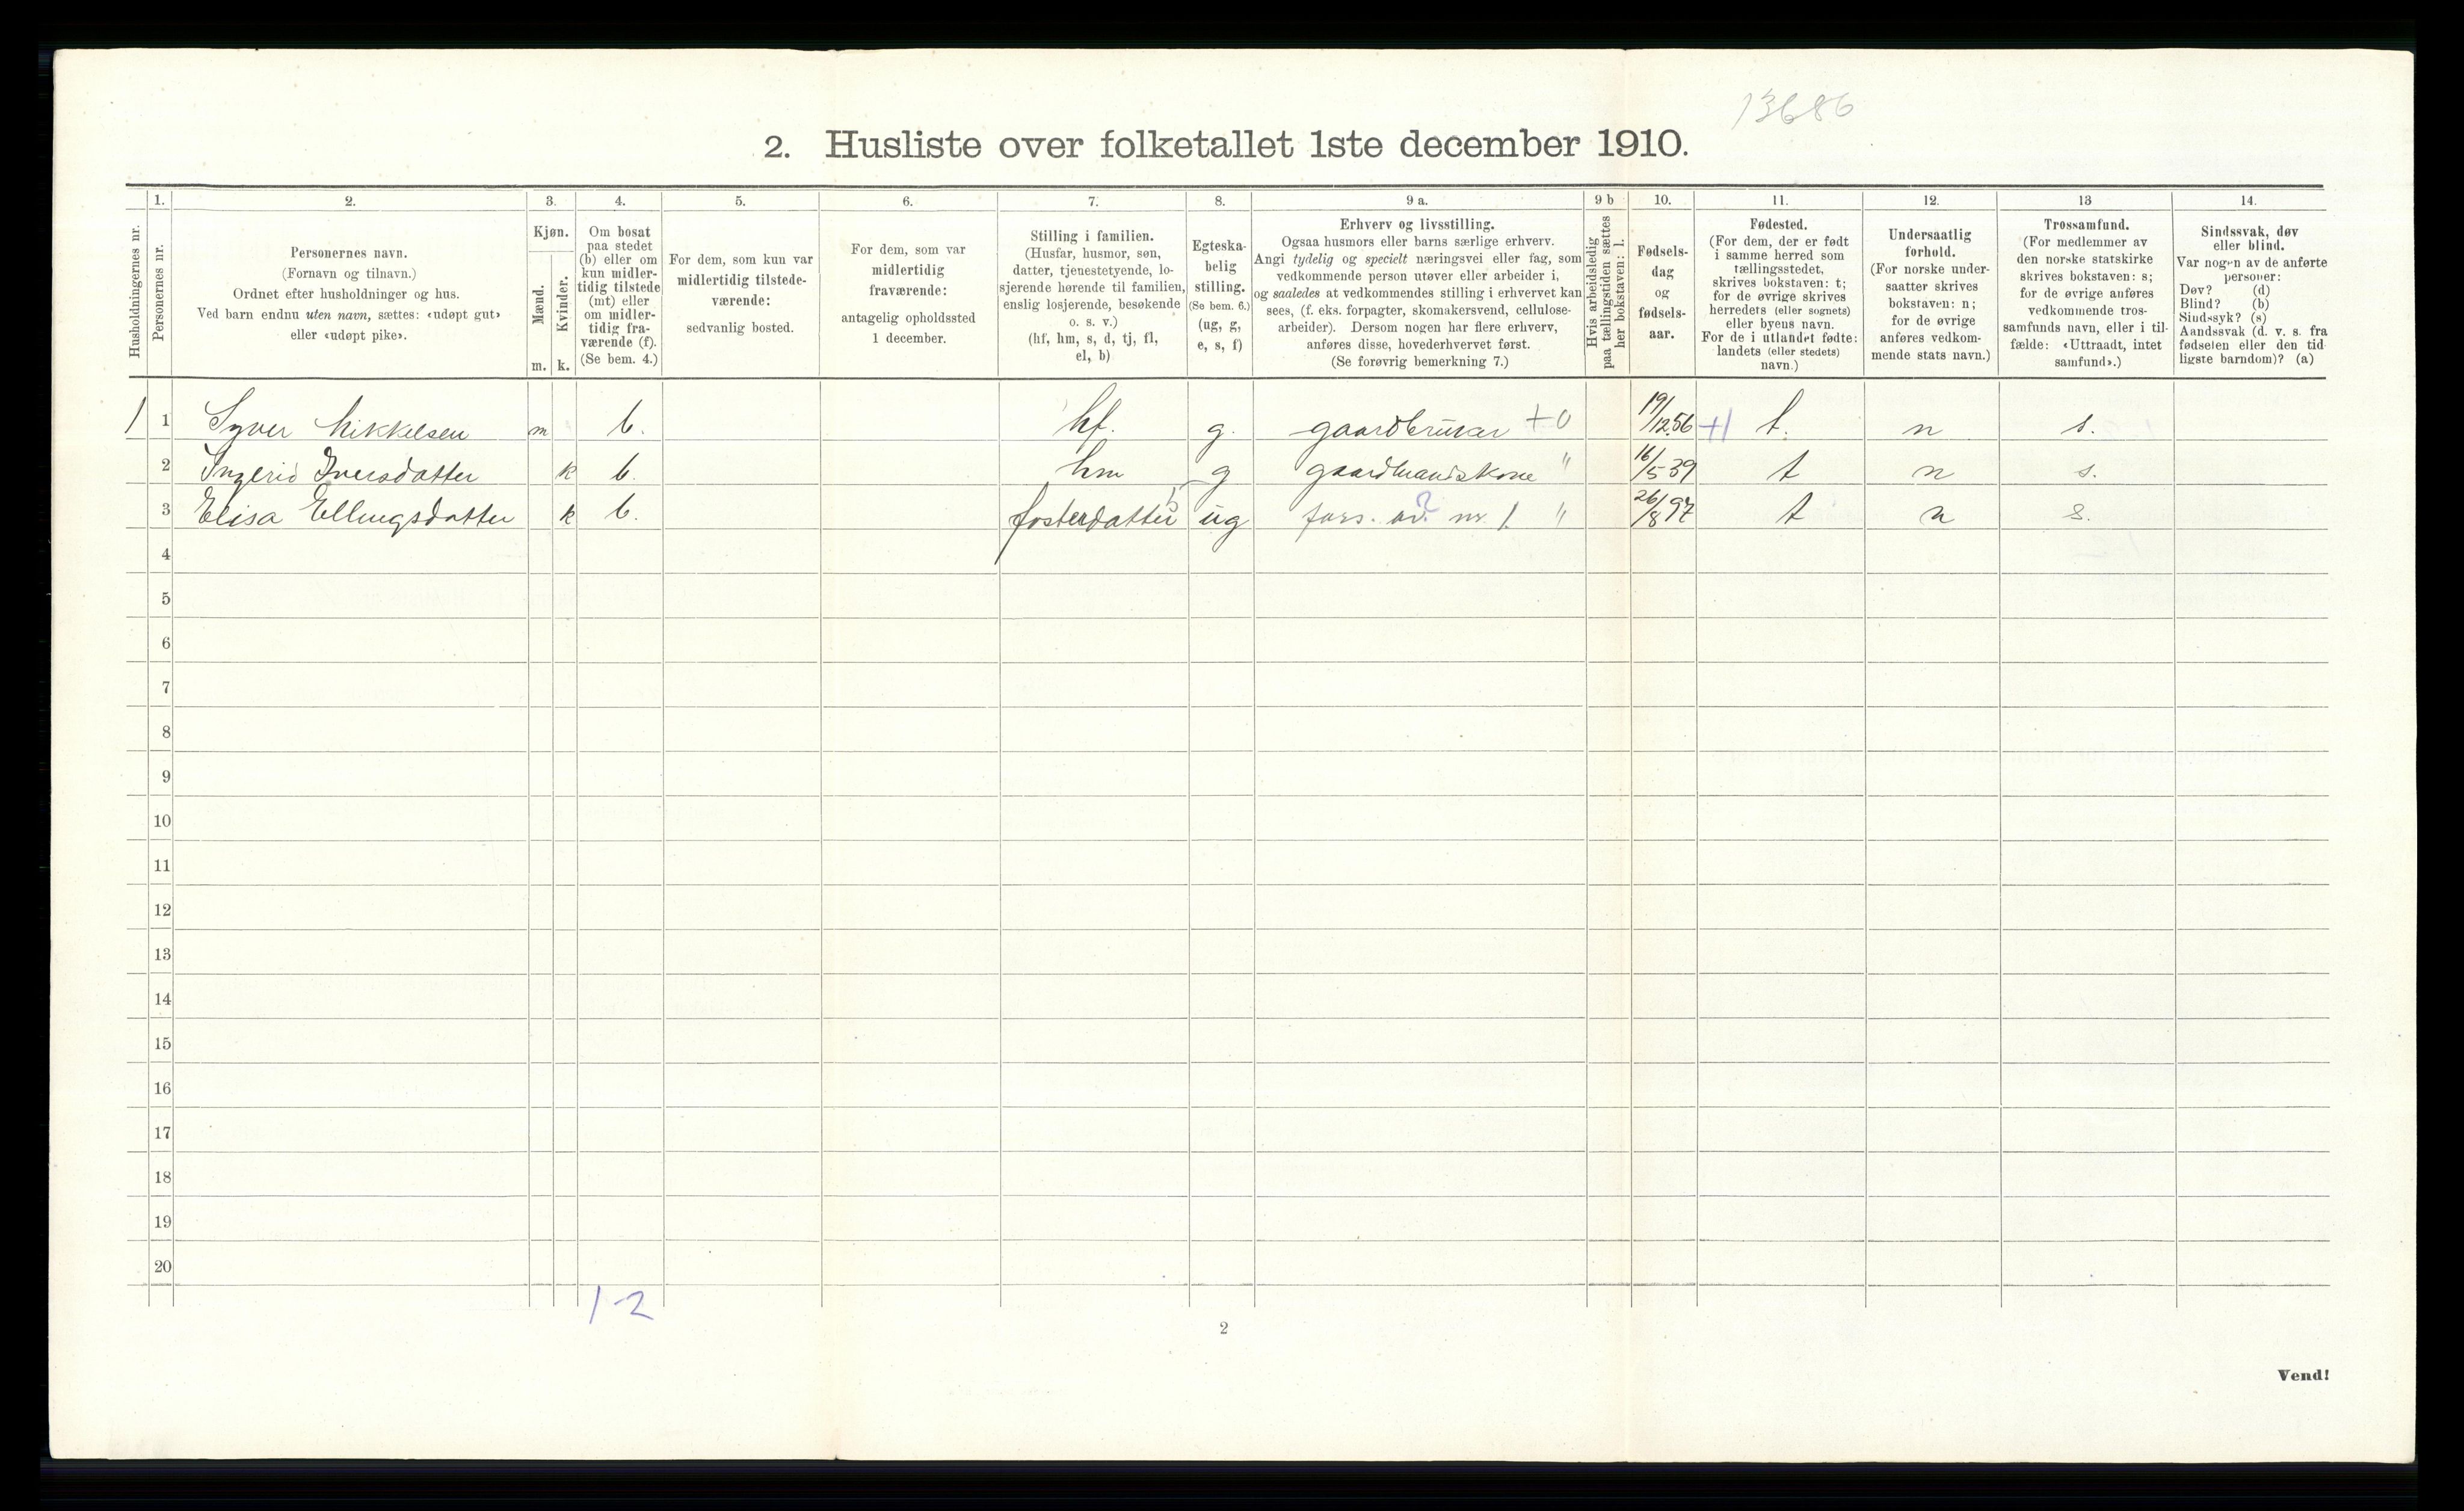 13686
2. Husliste over folketallet 1ste december 1910.
1. 2. 3. 4. 5. 6. 7. 8. 9 a. 9 b 10. 11. 12. 13 14.
Husholdningernes nr.
Personernes nr.
Personernes navn.
(Fornavn og tilnavn.)
Ordnet efter husholdninger og hus.
Ved barn endnu uten navn, sættes: «udøpt gut»
eller «udøpt pike».
Kjøn.
Mænd.
Kvinder.
m. k.
Om bosat
paa stedet
(b) eller om
kun midler-
tidig tilstede
(mt) eller
om midler-
tidig fra-
værende (f).
(Se bem. 4.)
For dem, som kun var
midlertidig tilstede-
værende:
sedvanlig bosted.
For dem, som var
midlertidig
fraværende:
antagelig opholdssted
1 december.
Stilling i familien.
(Husfar, husmor, søn,
datter, tjenestetyende, lo-
sjerende hørende til familien,
enslig losjerende, besøkende
o. s. v.)
(hf, hm, s, d, tj, fl,
el, b)
Egteska-
belig
stilling.
(Se bem. 6.)
(ug, g,
e, s, f)
Erhverv og livsstilling.
Ogsaa husmors eller barns særlige erhverv.
Angi tydelig og specielt næringsvei eller fag, som
vedkommende person utøver eller arbeider i,
og saaledes at vedkommendes stilling i erhvervet kan
sees, (f. eks. forpagter, skomakersvend, cellulose-
arbeider). Dersom nogen har flere erhverv,
anføres disse, hovederhvervet først.
(Se forøvrig bemerkning 7.)
Hvis arbeidsledig
paa tællingstiden sættes
her bokstaven: l.
Fødsels-
dag
og
fødsels-
aar.
Fødested.
(For dem, der er født
i samme herred som
tællingsstedet,
skrives bokstaven: t;
for de øvrige skrives
herredets (eller sognets)
eller byens navn.
For de i utlandet fødte:
landets (eller stedets)
navn.)
Undersaatlig
forhold.
(For norske under-
saatter skrives
bokstaven: n;
for de øvrige
anføres vedkom-
mende stats navn.)
Trossamfund.
(For medlemmer av
den norske statskirke
skrives bokstaven: s;
for de øvrige anføres
vedkommende tros-
samfunds navn, eller i til-
fælde: «Uttraadt, intet
samfund».)
Sindssvak, døv
eller blind.
Var nogen av de anførte
personer:
Døv? (d)
Blind? (b)
Sindssyk? (s)
Aandssvak (d. v. s. fra
fødselen eller den tid-
ligste barndom)? (a)
1 1 Syver Mikkelsen m b. hf. g. gaardbruker +0 19/12 56 +1 t. n s.
2 Ingerid Iversdatter k b. hm g gaardmandskone " 16/5 39 t n s.
3 Elisa Ellingsdatter k b. fosterdatter ug fors. av nr 1 " 26/8 97 t n s.
4
5
6
7
8
9
10
11
12
13
14
15
16
17
18
19
20
1-2
2
Vend!